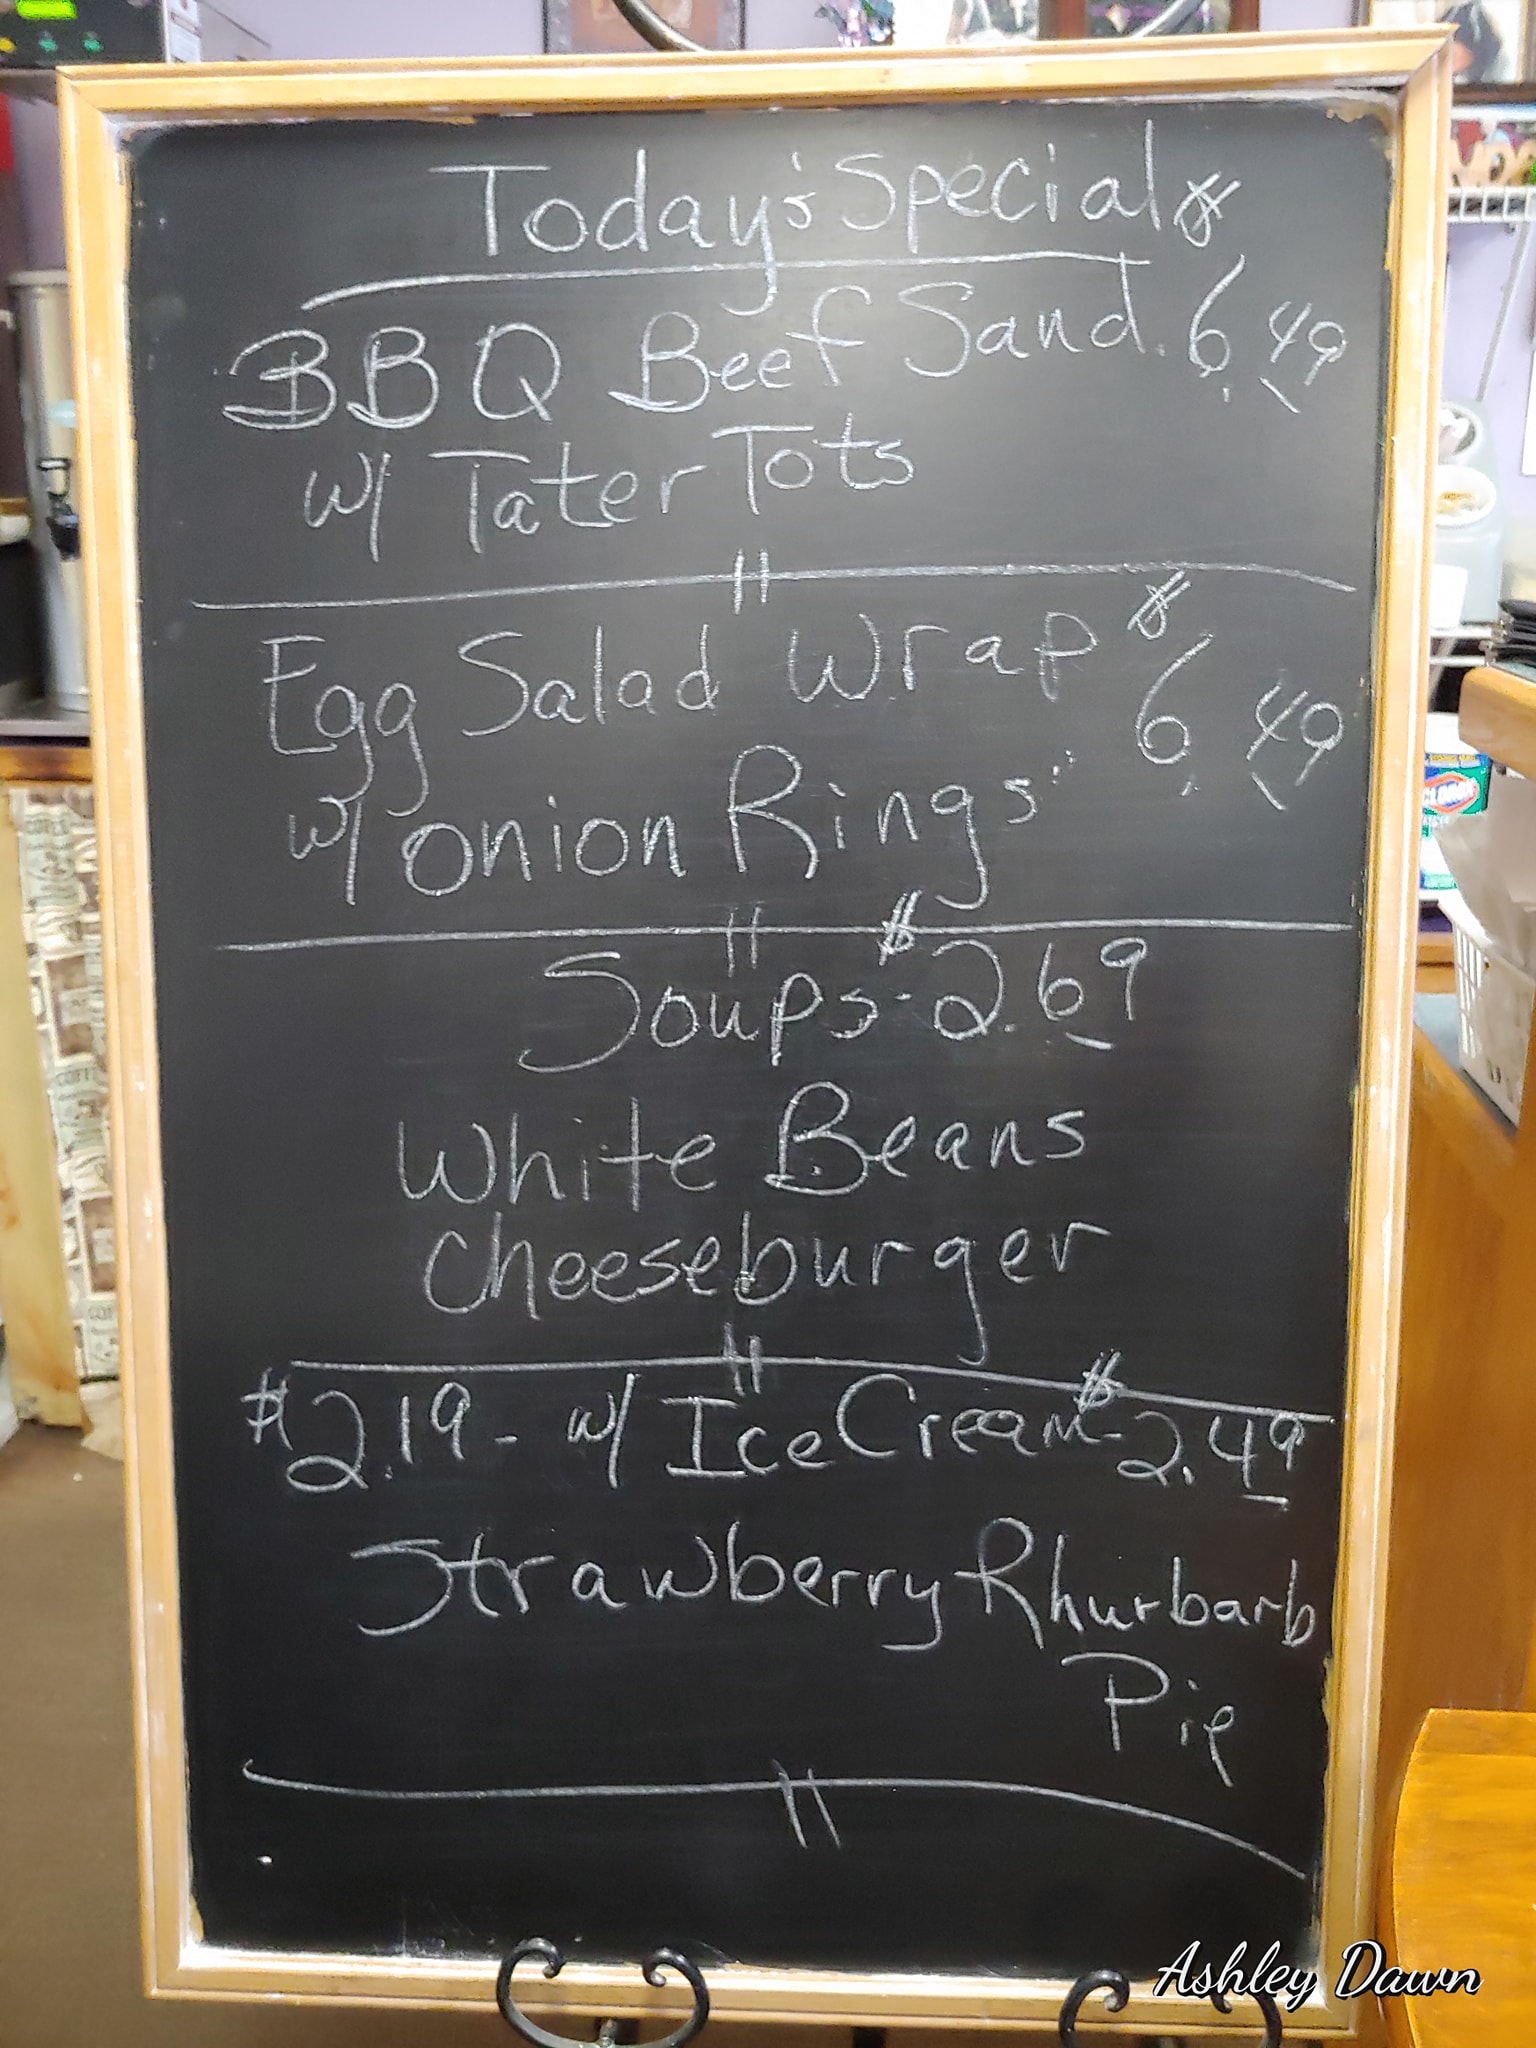 Today's Special
BBQ Beef Sand. $6.49
w/ Tater Tots
Egg Salad Wrap $6.49
w/ Onion Rings
Soups - $2.69
White Beans
Cheeseburger
$2.19 - w/ Ice Cream - $2.49
Strawberry Rhurbarb
Pie
CLOROX
Ashley Dawn